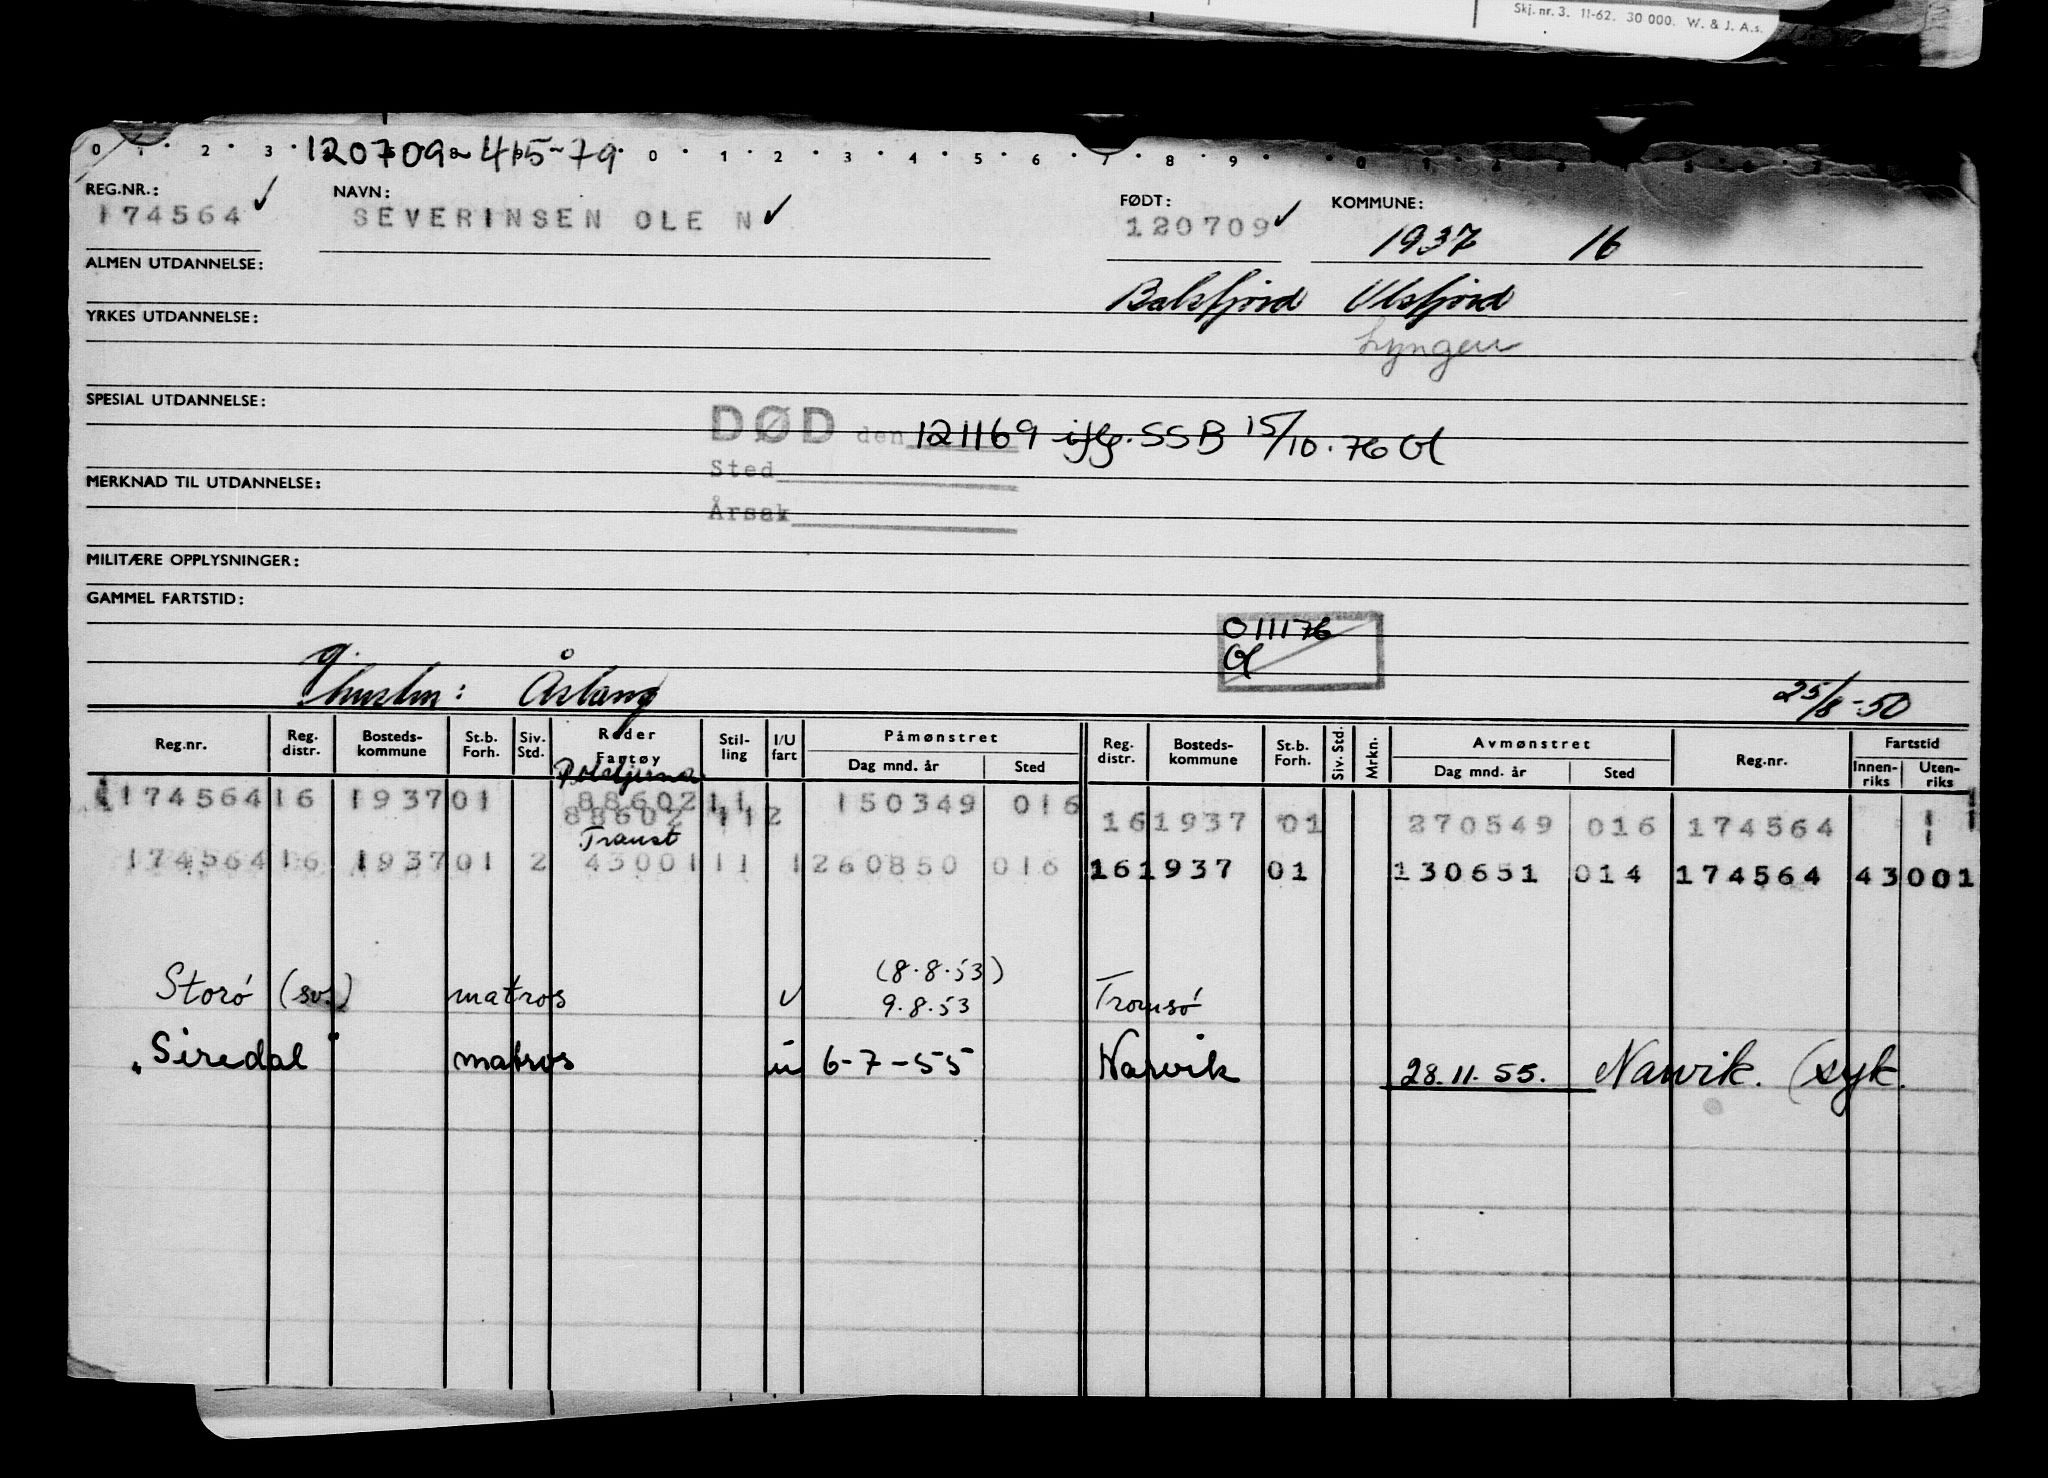 Skj. nr. 3. 11-62. 30 000. W. & J. A.s.
120709-415-79
REG.NR.: NAVN: FØDT: KOMMUNE:
174564 ✓ SEVERINSEN OLE N ✓ 120709 ✓ 1937 16
ALMEN UTDANNELSE:
Balsfjord Ulsfjord
YRKES UTDANNELSE:
Lyngen
SPESIAL UTDANNELSE:
DØD den 121169 iflg. SSB 15/10.76
Sted
MERKNAD TIL UTDANNELSE:
Årsak
MILITÆRE OPPLYSNINGER:
GAMMEL FARTSTID:
011176
g. hustru: Åslaug 25/8-50
Reg.nr. Reg. distr. Bosteds-kommune St.b. Forh. Siv. Std. Reder Fartøy Stil-ling I/U fart Påmønstret Dag mnd. år Sted Reg. distr. Bosteds-kommune St.b. Forh. Siv. Std. Mrkn. Avmønstret Dag mnd. år Sted Reg.nr. Fartstid Innen-riks Uten-riks
Polstjerna
174564 16 1937 01 88602 11 150349 016
88602 112 16 1937 01 270549 016 174564
Transt
174564 16 1937 01 2 43001 11 1 260850 016 16 1937 01 130651 014 174564 43001
(8.8.53)
Storø (sv.) matros 9.8.53 Tromsø
"Siredal" matros u 6-7-55 Narvik 28.11.55. Narvik. (syk.